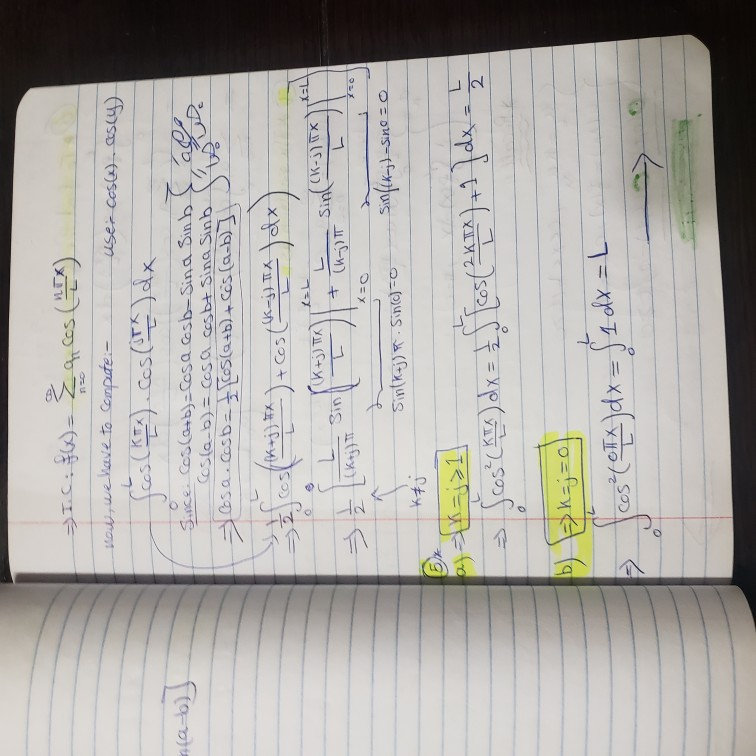 ⇒ I.C: f(x) = ∑_{n=0}^{∞} a_n cos(nπx/L)
now, we have to compute:- use:- cos(x)·cos(y)
∫_0^L cos(kπx/L)·cos(jπx/L) dx
Since: cos(a+b)=cosa cosb - Sina Sinb
cos(a-b)=cosa cosb+Sina Sinb
⇒ cosa·cosb=1/2[cos(a+b)+cos(a-b)]
⇒ 1/2 ∫_0^L cos((k+j)πx/L) + cos((k-j)πx/L) dx
⇒ 1/2 [ L/(k+j)π Sin((k+j)πx/L) |_{x=0}^{x=L} + L/(k-j)π Sin((k-j)πx/L) |_{x=0}^{x=L} ]
Sin(k+j)π·Sin(0)=0 Sin((k-j)-Sin0=0
k≠j
5
a) ⇒ k=j≥1
⇒ ∫_0^L cos²(kπx/L)dx = 1/2 ∫_0^L [cos(2kπx/L)+1] dx = L/2
b) ⇒ k=j=0
⇒ ∫_0^L cos²(0πx/L)dx = ∫_0^L 1·dx = L
n(a-b)]